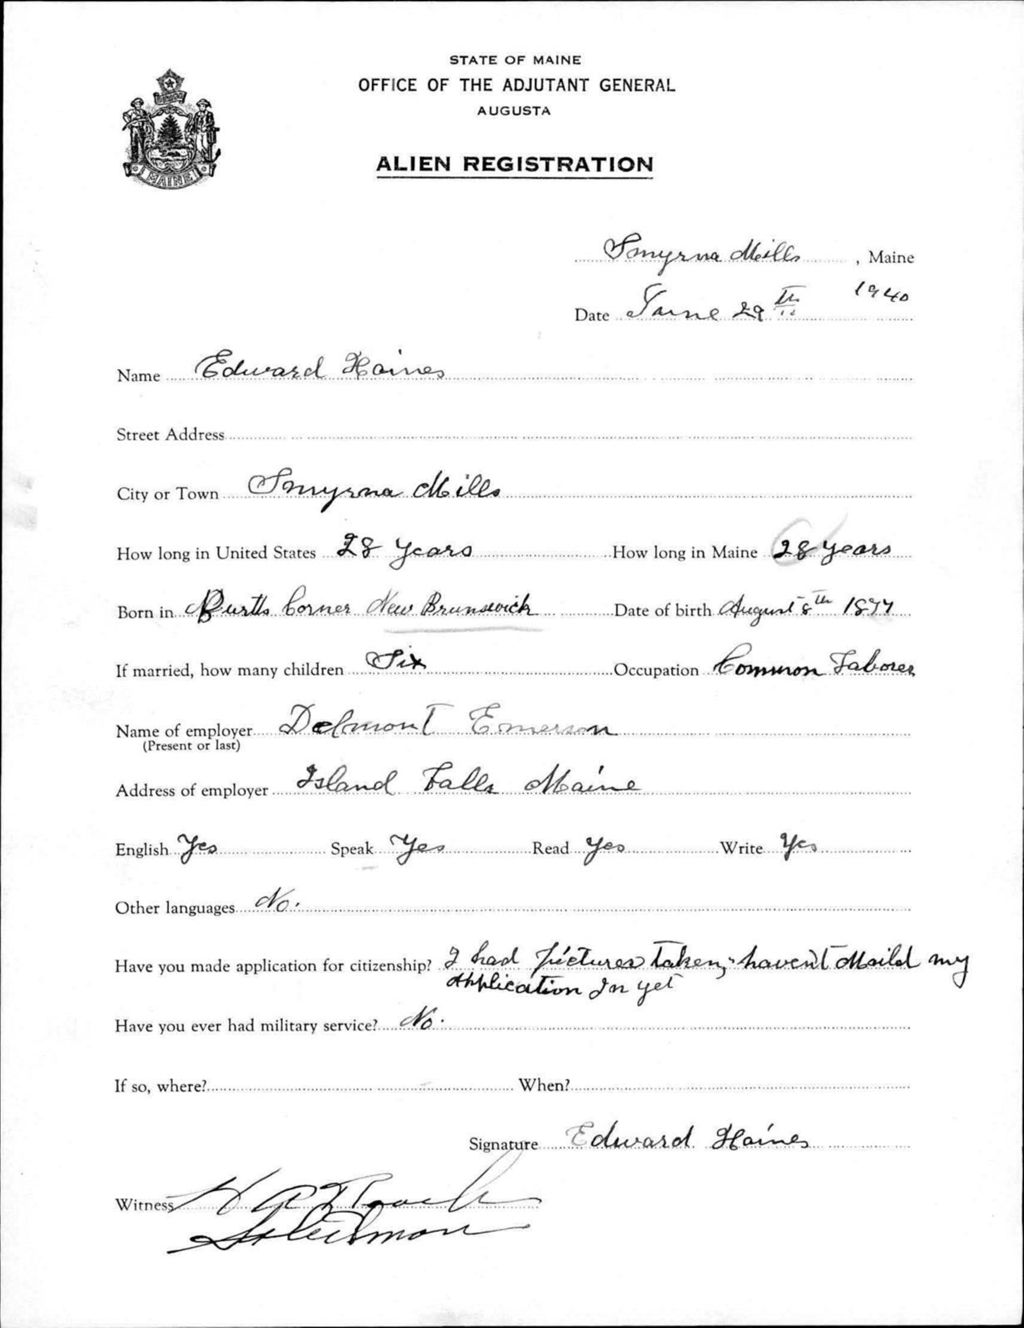 STATE OF MAINE
OFFICE OF THE ADJUTANT GENERAL
AUGUSTA
ALIEN REGISTRATION
MAINE
Smyrna Mills, Maine
Date June 29th 1940
Name Edward Haines
Street Address
City or Town Smyrna Mills
How long in United States 28 Years How long in Maine 28 years
Born in Burtts Corner New Brunswick Date of birth August 8th
If married, how many children Six Occupation Common Laborer
Name of employer Delmont Emerson
(Present or last)
Address of employer Island Falls Maine
English Yes Speak Yes Read Yes Write Yes
Other languages No.
Have you made application for citizenship? I had pictures taken, haven't Maild my
application In yet
Have you ever had military service? No.
If so, where? When?
Signature Edward Haines
Witness